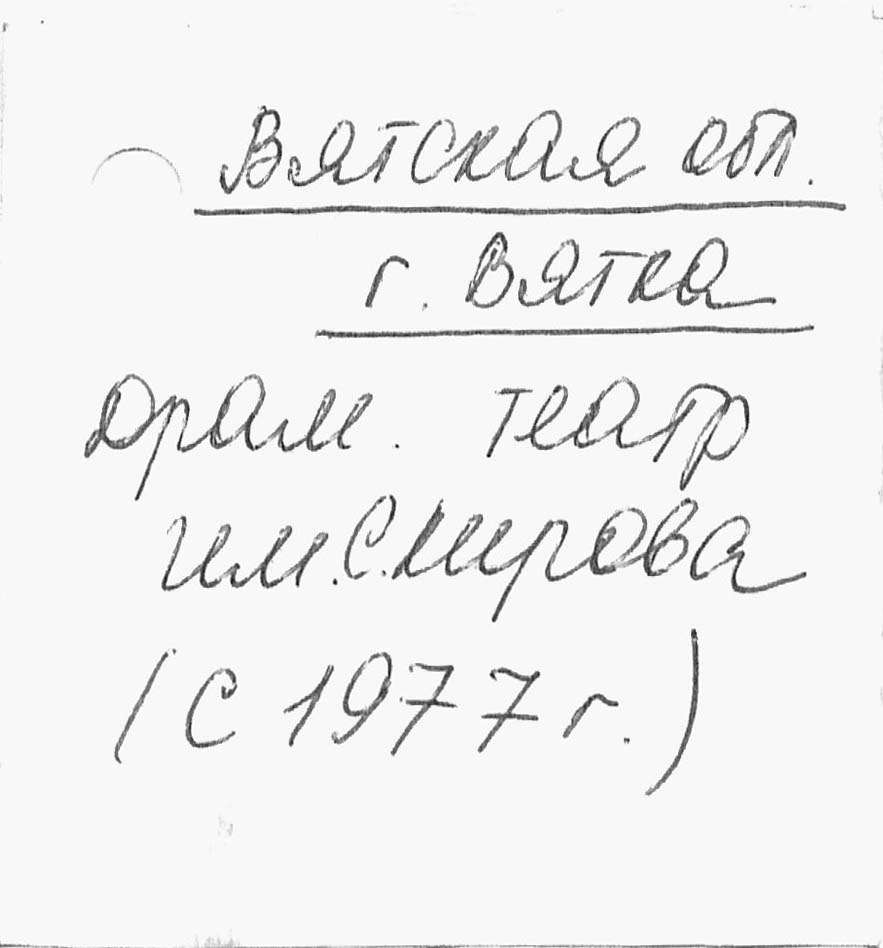 Вятская обл.
г. Вятка
Драм. театр
им. С. Кирова
(с 1977 г.)